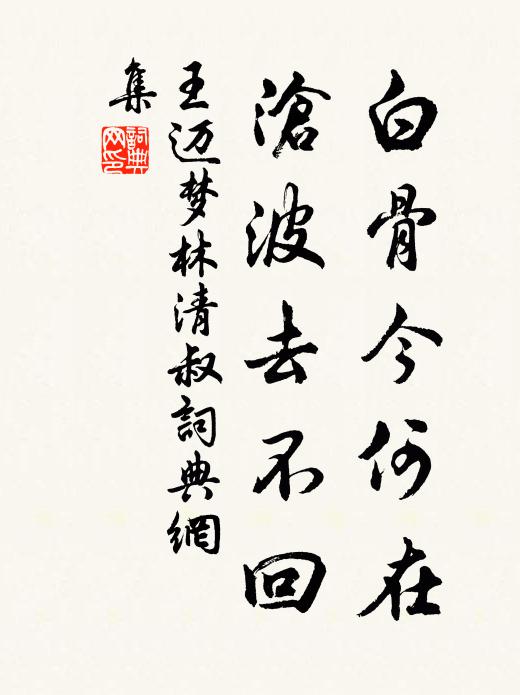 白骨今何在
滄波去不回
王迈梦林清叔詞典網
集
詞典网印